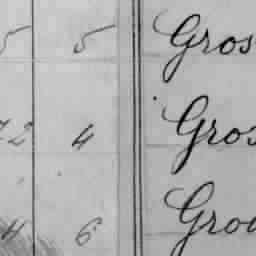 5 5 Gros
72 4 Gros
4 6 Grou